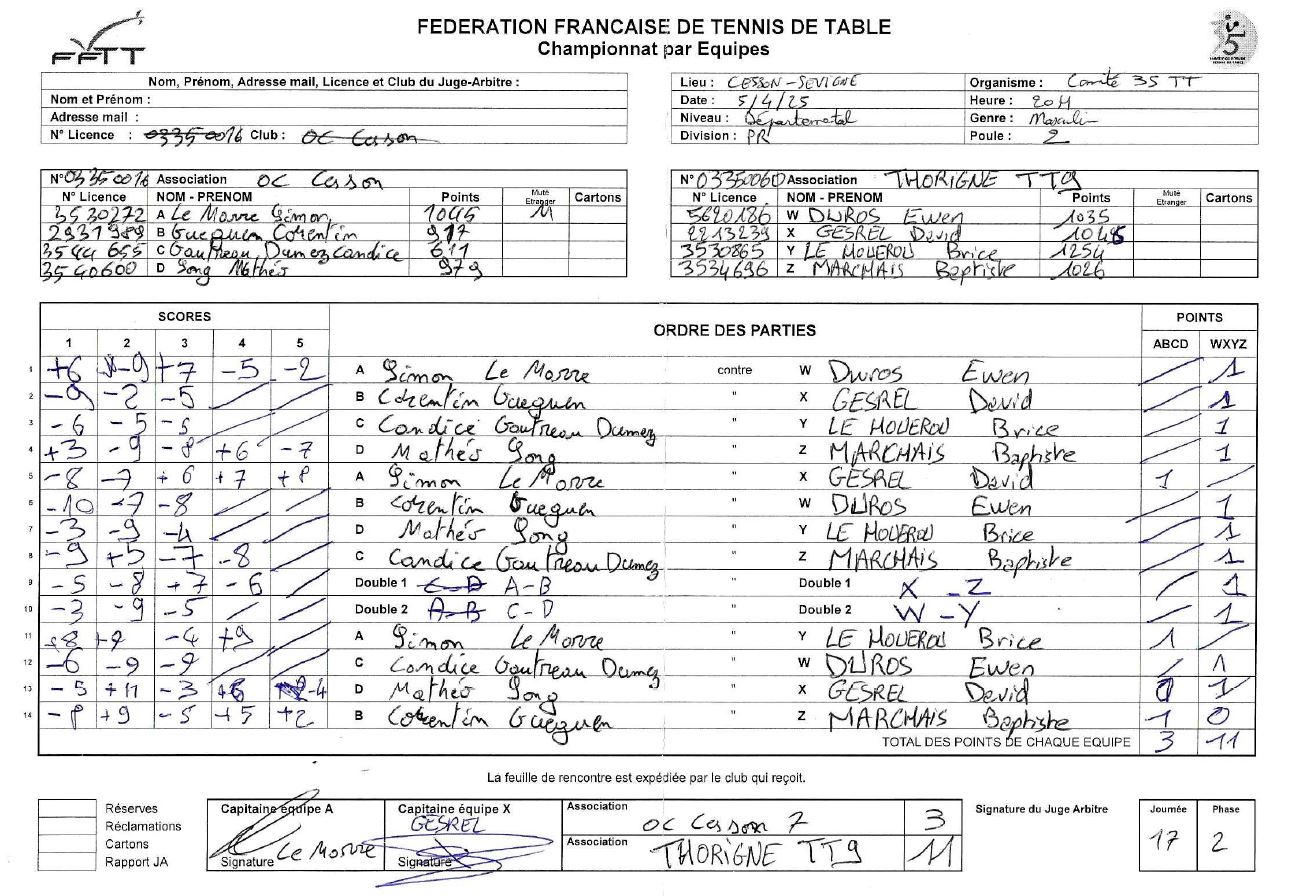 FEDERATION FRANCAISE DE TENNIS DE TABLE
Championnat par Equipes
FFTT
Nom, Prénom, Adresse mail, Licence et Club du Juge-Arbitre :
Nom et Prénom :
Adresse mail :
N° Licence : 03350016 Club : OC Cesson
Lieu : CESSON-SEVIGNE Organisme : Comité 35 TT
Date : 5/4/25 Heure : 20H
Niveau : Départemental Genre : Masculin
Division : PR Poule : 2
N° 03350016 Association OC Cesson
N° Licence NOM - PRENOM Points Muté Etranger Cartons
3530272 A Le Morre Simon 1045 M
2931989 B Gueguen Corentin 917
3544655 C Gautreau Dumez Candice 611
3540600 D Song Mathéo 979
N° 03350060 Association THORIGNE TT9
N° Licence NOM - PRENOM Points Muté Etranger Cartons
5620186 W DUROS Ewen 1035
2213239 X GESREL David 1048
3530865 Y LE HOUEROU Brice 1254
3534696 Z MARCHAIS Baptiste 1026
SCORES ORDRE DES PARTIES POINTS
1 2 3 4 5 ABCD WXYZ
1 +6 -9 +7 -5 -2 A Simon Le Morre contre W Duros Ewen 1
2 -9 -2 -5 B Corentin Gueguen " X GESREL David 1
3 -6 -5 -5 C Candice Gautreau Dumez " Y LE HOUEROU Brice 1
4 +3 -9 -8 +6 -7 D Mathéo Song " Z MARCHAIS Baptiste 1
5 -8 -7 +6 +7 +8 A Simon Le Morre " X GESREL David 1
6 -10 -7 -8 B Corentin Gueguen " W DUROS Ewen 1
7 -3 -9 -4 D Mathéo Song " Y LE HOUEROU Brice 1
8 -9 +5 -7 -8 C Candice Gautreau Dumez " Z MARCHAIS Baptiste 1
9 -5 -8 +7 -6 Double 1 C-D A-B " Double 1 X-Z 1
10 -3 -9 -5 Double 2 A-B C-D " Double 2 W-Y 1
11 +8 +9 -4 +9 A Simon Le Morre " Y LE HOUEROU Brice 1
12 -6 -9 -9 C Candice Gautreau Dumez " W DUROS Ewen 1
13 -5 +11 -3 +6 -4 D Mathéo Song " X GESREL David 0 1
14 -8 +9 -5 +5 +2 B Corentin Gueguen " Z MARCHAIS Baptiste 1 0
TOTAL DES POINTS DE CHAQUE EQUIPE 3 11
La feuille de rencontre est expédiée par le club qui reçoit.
Réserves
Réclamations
Cartons
Rapport JA
Capitaine équipe A
Signature Le Morre
Capitaine équipe X
GESREL
Signature
Association OC Cesson 7 3
Association THORIGNE TT9 11
Signature du Juge Arbitre
Journée Phase
17 2